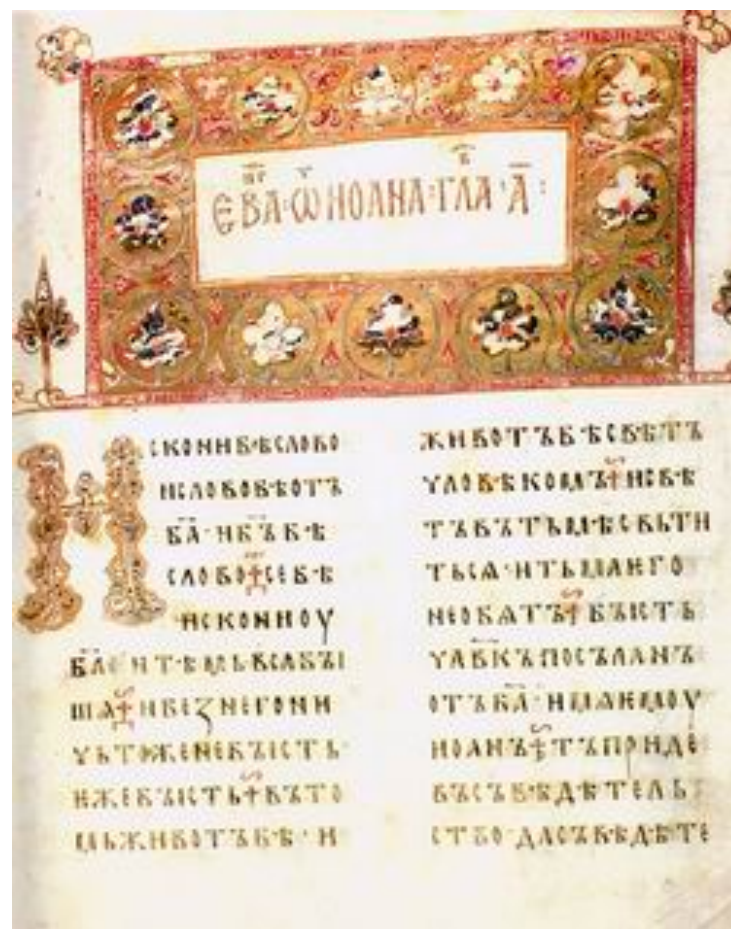 ЄВА · Ѿ ИОАНА · ГЛА · А҃ :
ИСКОНИБѢСЛОВО
ИСЛОВОБѢОТЪ
БА҃ · ИБ҃ЪБѢ
СЛОВО ☦ СЕБѢ
ИСКОНИОУ
БА҃ · ИТѢМЬВСАБЪІ
ШѦ ☦ ИБЕЗНЕГОНИ
ЧЬТОЖЕНЕБЪІСТЬ ·
ИЖЕБЪІСТЬ ☦ ВЪТО
МЬЖИВОТЪБѢ · И
ЖИВОТЪБѢСВѢТЪ
ЧЛОВѢКОМЪ ☦ ИСВѢ
ТЪВЪТЬМѢСВЬТИ
ТЬСѦ · ИТЬМАѤГО
НЕОБѦТЪ ☦ БЪІСТЬ
ЧЛ҃ВКЪПОСЪЛАНЪ
ОТЪБА҃ · ИМѦѤМОУ
ИОАНЪ ☦ ТЪПРИДЕ
ВЪСЪВѢДѢТЕЛЬ
СТВО · ДАСЪВѢДѢТЕ